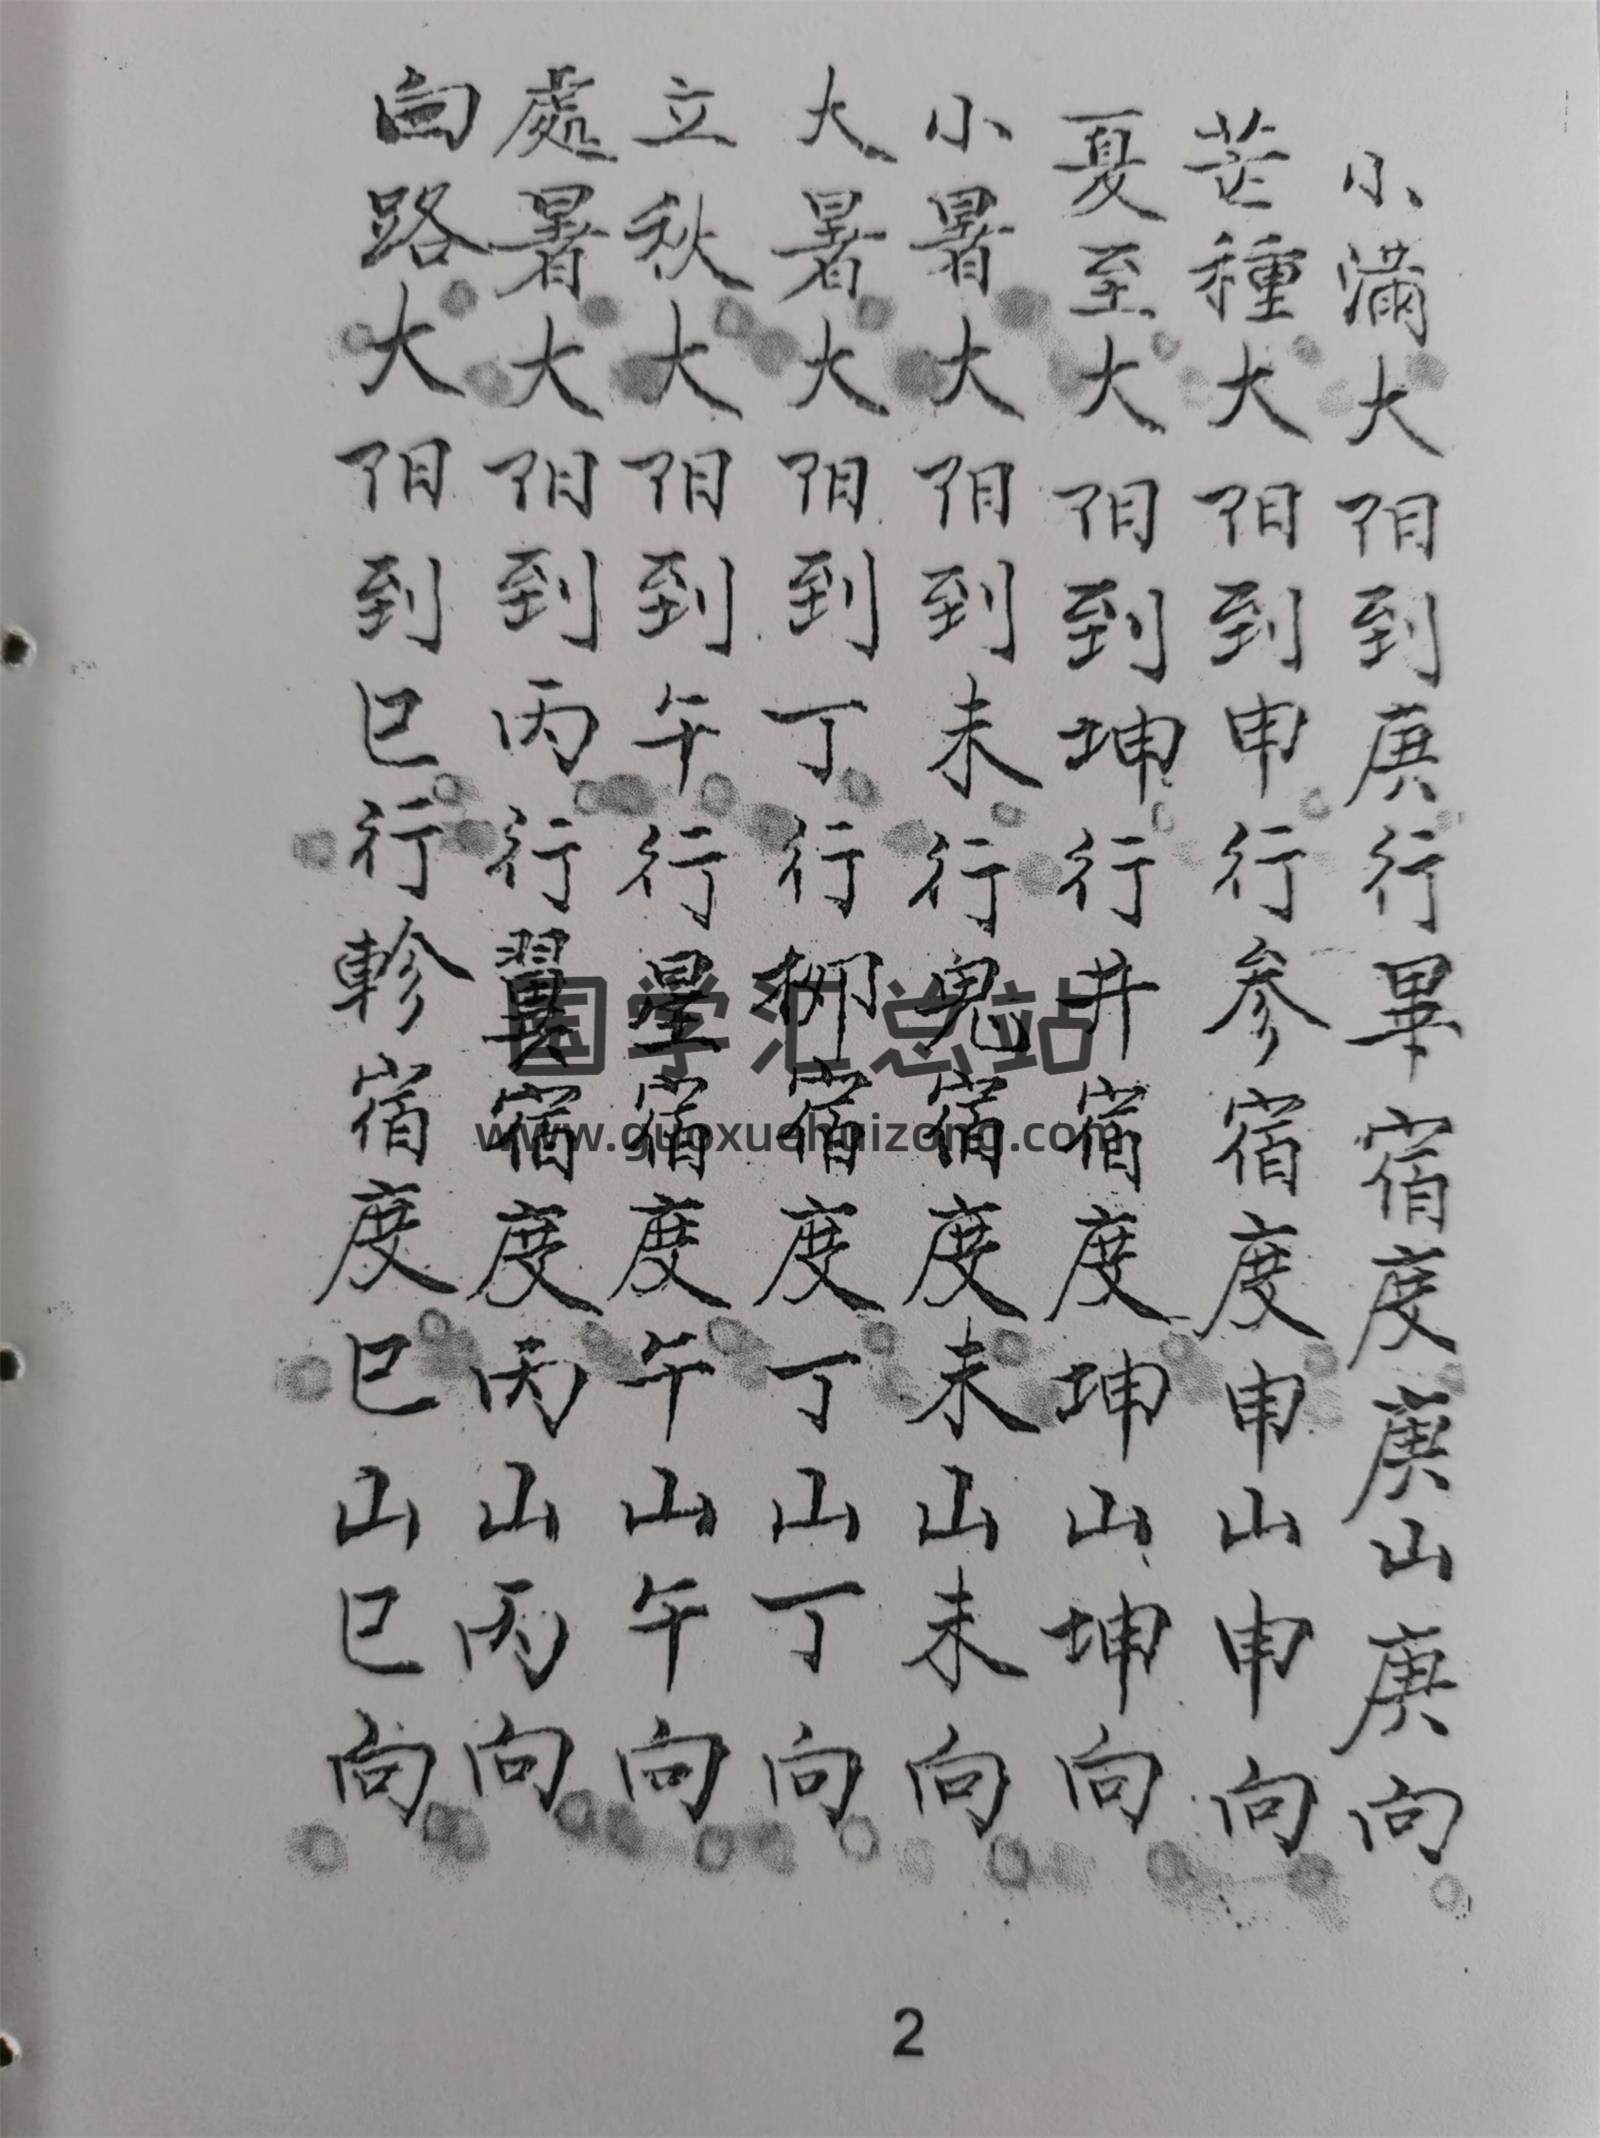 小滿大阳到庚行畢宿度庚山庚向
芒種大阳到申行参宿度申山申向
夏至大阳到坤行井宿度坤山坤向
小暑大阳到未行鬼宿度未山未向
大暑大阳到丁行柳宿度丁山丁向
立秋大阳到午行星宿度午山午向
處暑大阳到丙行翼宿度丙山丙向
白路大阳到巳行軫宿度巳山巳向
国学汇总站
www.guoxuehuizong.com
2